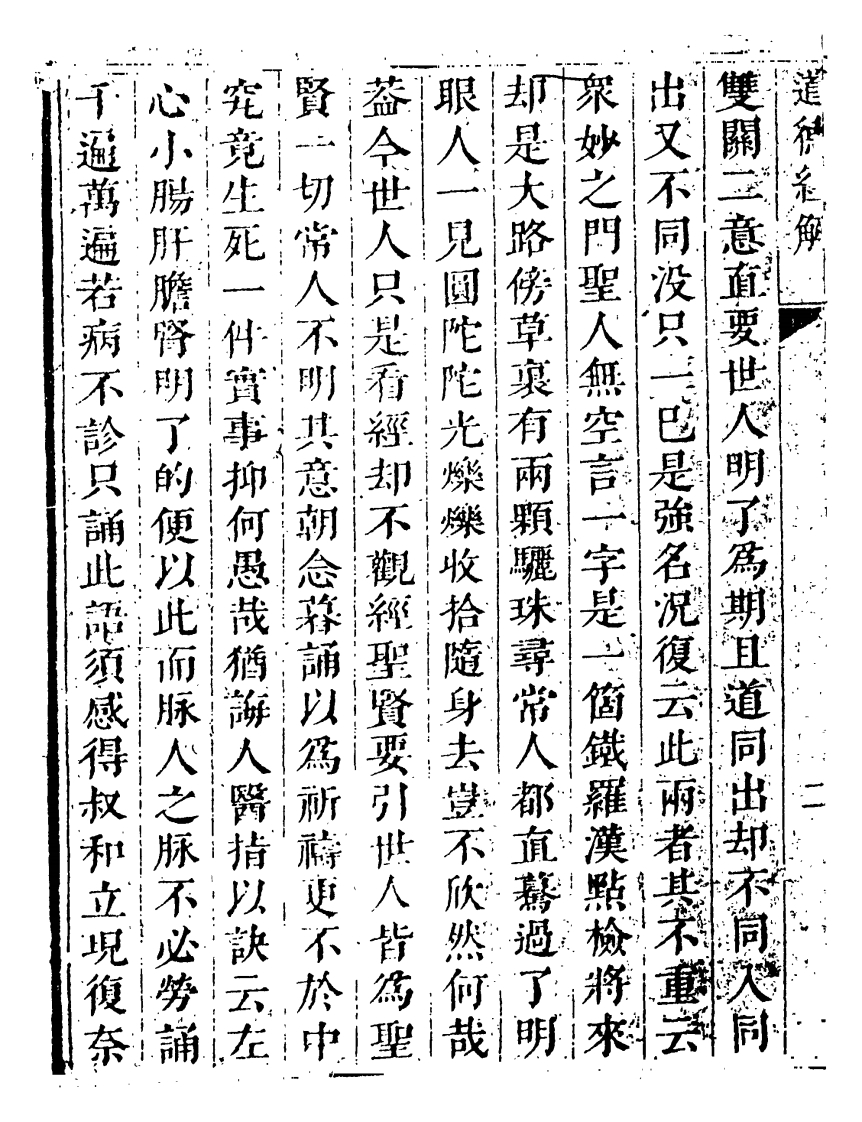 道德經解
二
雙關二意直要世人明了爲期且道同出却不同入同
出又不同没只一已是強名况復云此兩者其不重云
衆妙之門聖人無空言一字是一箇鐵羅漢點檢將來
却是大路傍草裏有兩顆驪珠尋常人都直驀過了明
眼人一見圓陀陀光爍爍收拾隨身去豈不欣然何哉
葢今世人只是看經却不觀經聖賢要引世人皆爲聖
賢一切常人不明其意朝念暮誦以爲祈禱更不於中
究竟生死一件實事抑何愚哉猶誨人醫指以訣云左
心小腸肝膽腎明了的便以此而脉人之脉不必勞誦
千遍萬遍若病不診只誦此語須感得叔和立現復奈